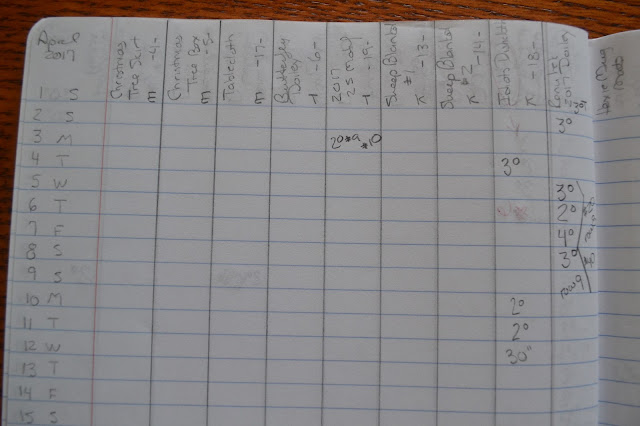 April
2017
Christmas
Tree Skirt
m -4-
Christmas
Tree Box
m -5-
Tablecloth
m -17-
Butterfly
Doily
-6-
2017
25 Motif
-19-
Sheep Blanket
#1
K -13-
Sheep Blanket
#2
K -14-
K -18-
2017 Doily
1 S
2 S 3°
3 M 2° #9 #10
4 T 3°
5 W 3°
6 T 2°
7 F 4°
8 S 3°
9 S row 9
10 M 2°
11 T 2°
12 W 30"
13 T
14 F
15 S